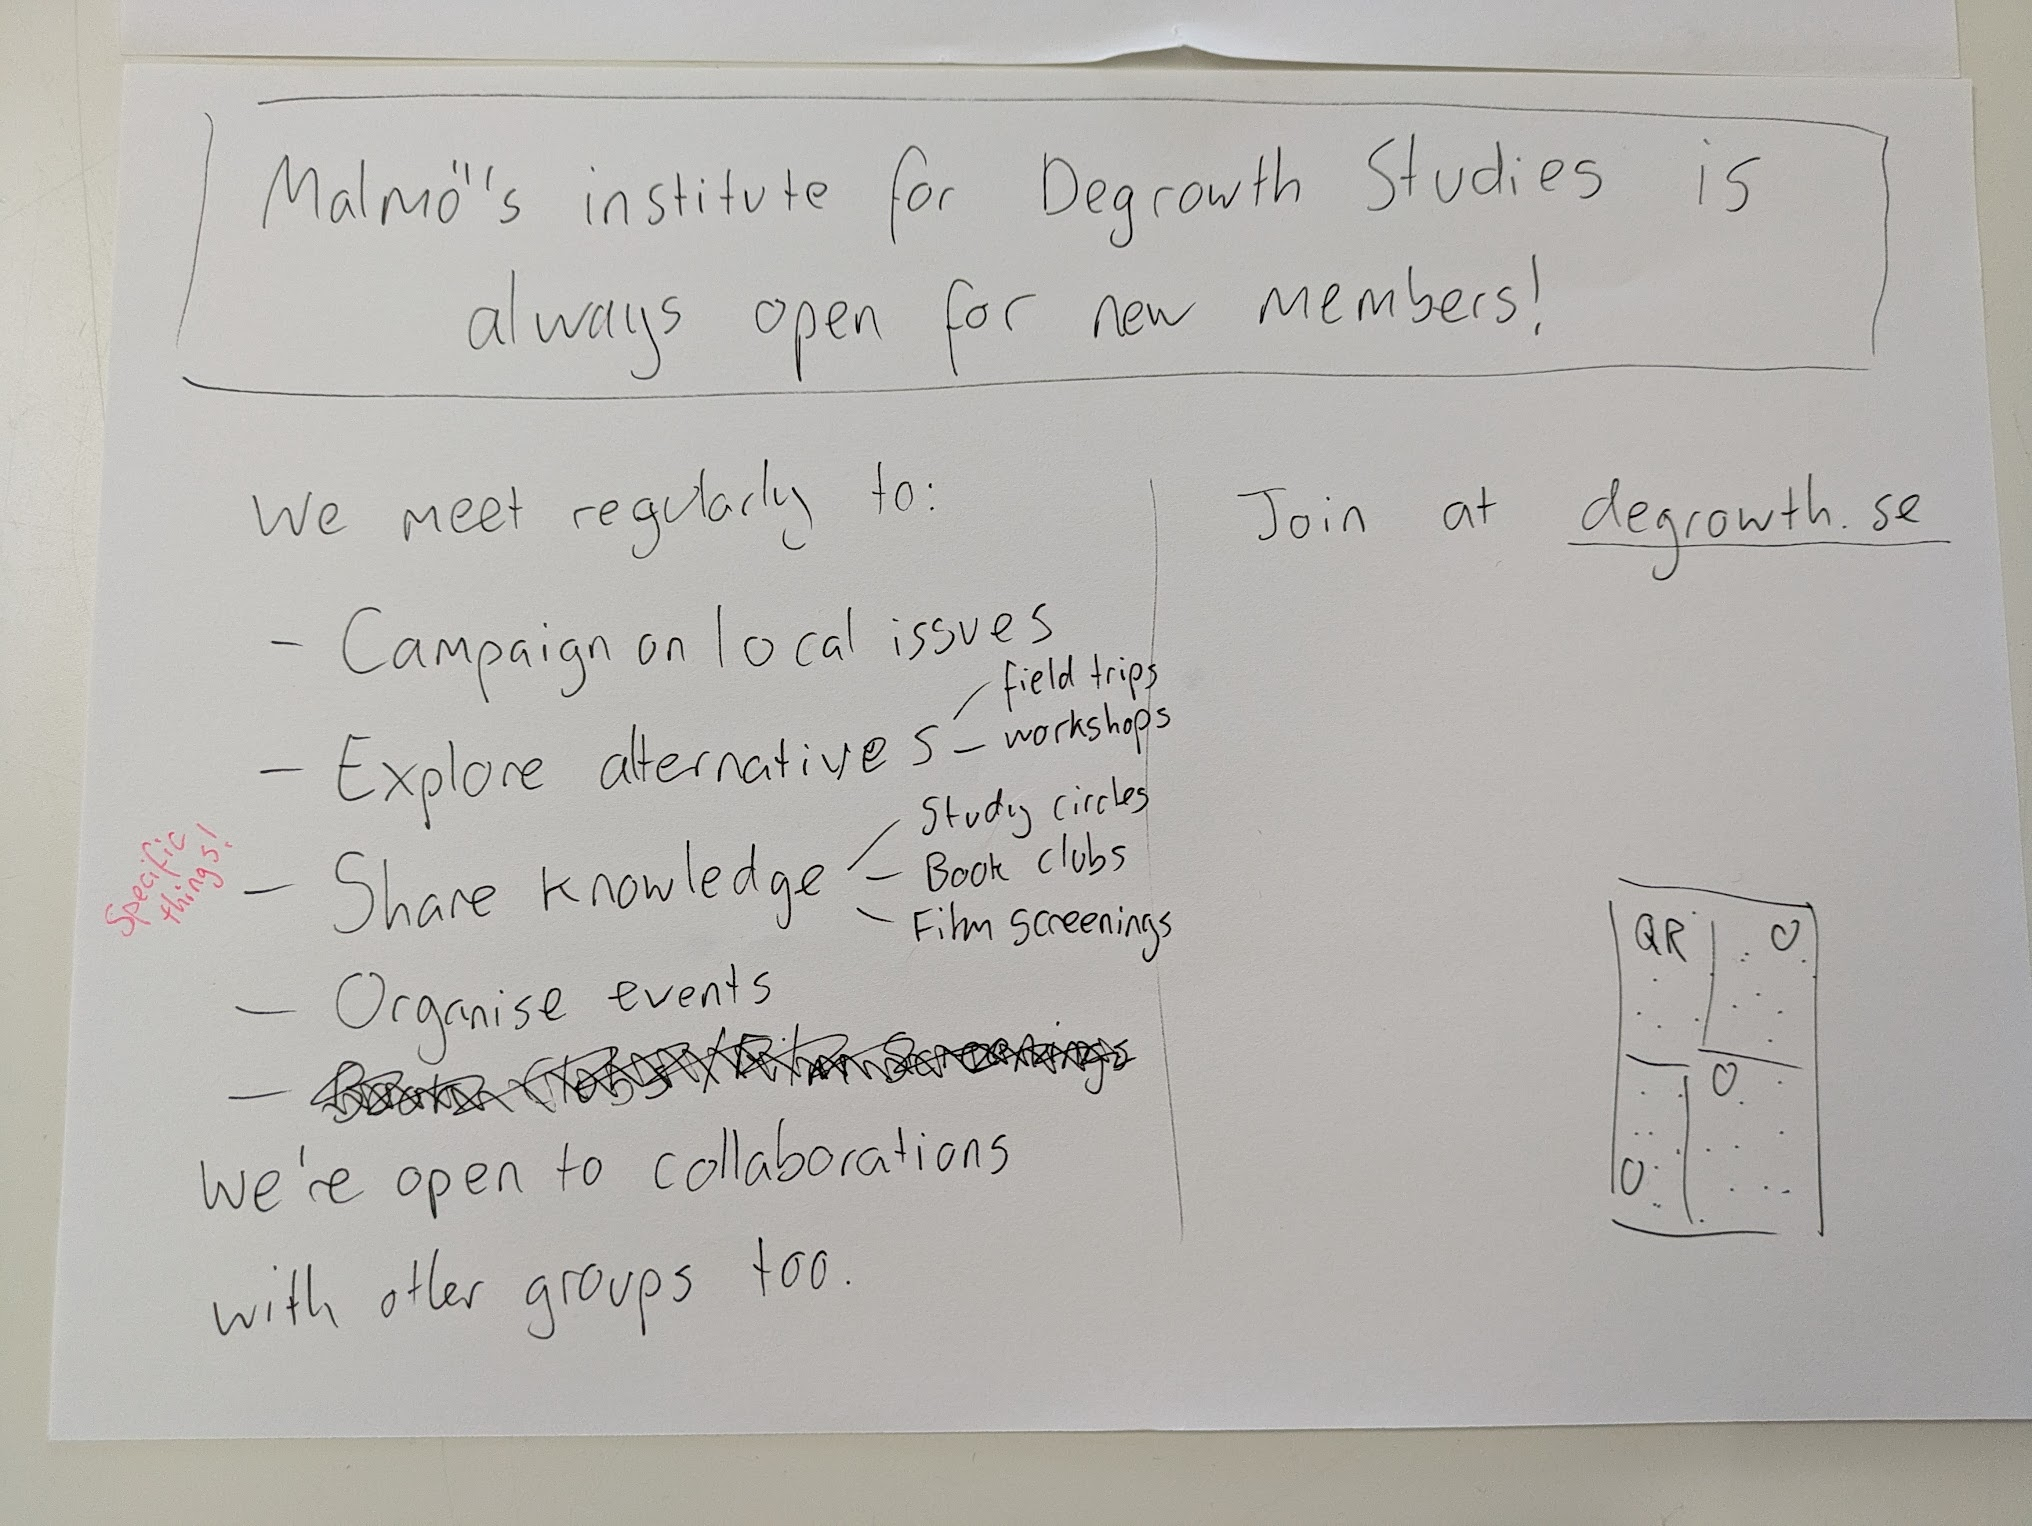 Malmö's institute for Degrowth Studies is
always open for new members!
We meet regularly to:
- Campaign on local issues
- Explore alternatives
- field trips
- workshops
- Share knowledge
- Study circles
- Book clubs
- Film screenings
Specific
things!
- Organise events
- Book Clubs / Film Screenings
We're open to collaborations
with other groups too.
Join at degrowth.se
QR